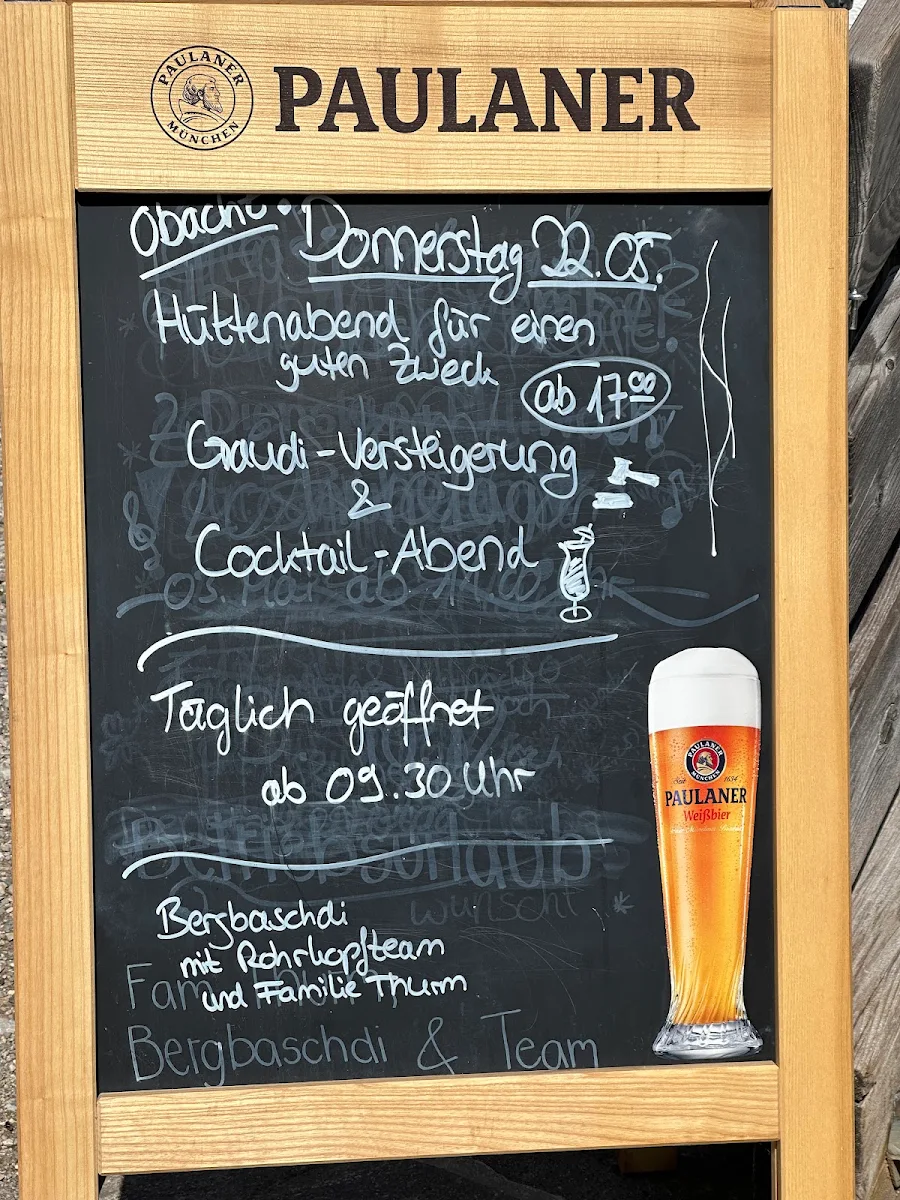 PAULANER
MÜNCHEN
PAULANER
Obacht! Donnerstag 22.05.
Hüttenabend für einen
guten Zweck
ab 17⁰⁰
Gaudi-Versteigerung
&
Cocktail-Abend
03. Mai ab 11.00 Uhr
Täglich geöffnet
ab 09.30 Uhr
PAULANER
MÜNCHEN
Seit 1634
PAULANER
Weißbier
Betriebsurlaub
wünscht
Bergbaschdi
mit Rohrkopfteam
und Familie Thurm
Fam
Bergbaschdi & Team